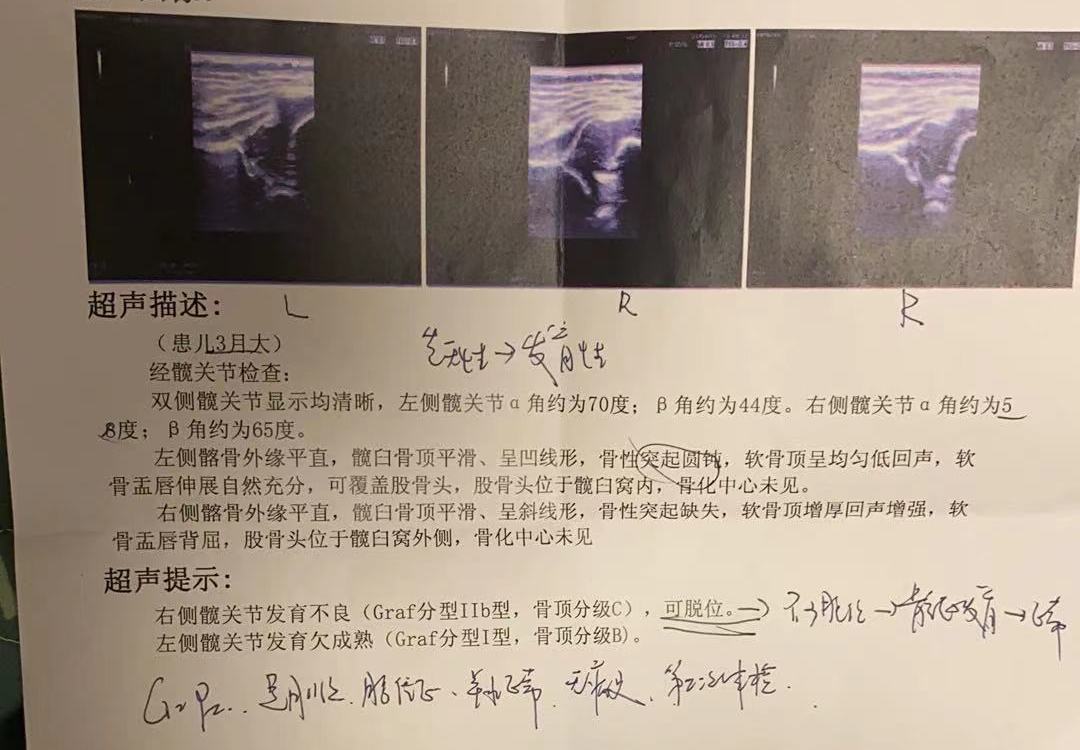 L R R
超声描述：
（患儿3月大）
先天性→发育性
经髋关节检查：
双侧髋关节显示均清晰，左侧髋关节α角约为70度；β角约为44度。右侧髋关节α角约为5
8度；β角约为65度。
左侧髂骨外缘平直，髋臼骨顶平滑、呈凹线形，骨性突起圆钝，软骨顶呈均匀低回声，软
骨盂唇伸展自然充分，可覆盖股骨头，股骨头位于髋臼窝内，骨化中心未见。
右侧髂骨外缘平直，髋臼骨顶平滑、呈斜线形，骨性突起缺失，软骨顶增厚回声增强，软
骨盂唇背屈，股骨头位于髋臼窝外侧，骨化中心未见
超声提示：
右侧髋关节发育不良（Graf分型IIb型，骨顶分级C），可脱位。→不可脱位→髋正发育→正常
左侧髋关节发育欠成熟（Graf分型I型，骨顶分级B)。
G2P2. 足月 胎位正、羊水正常、无病史、第二次体检.